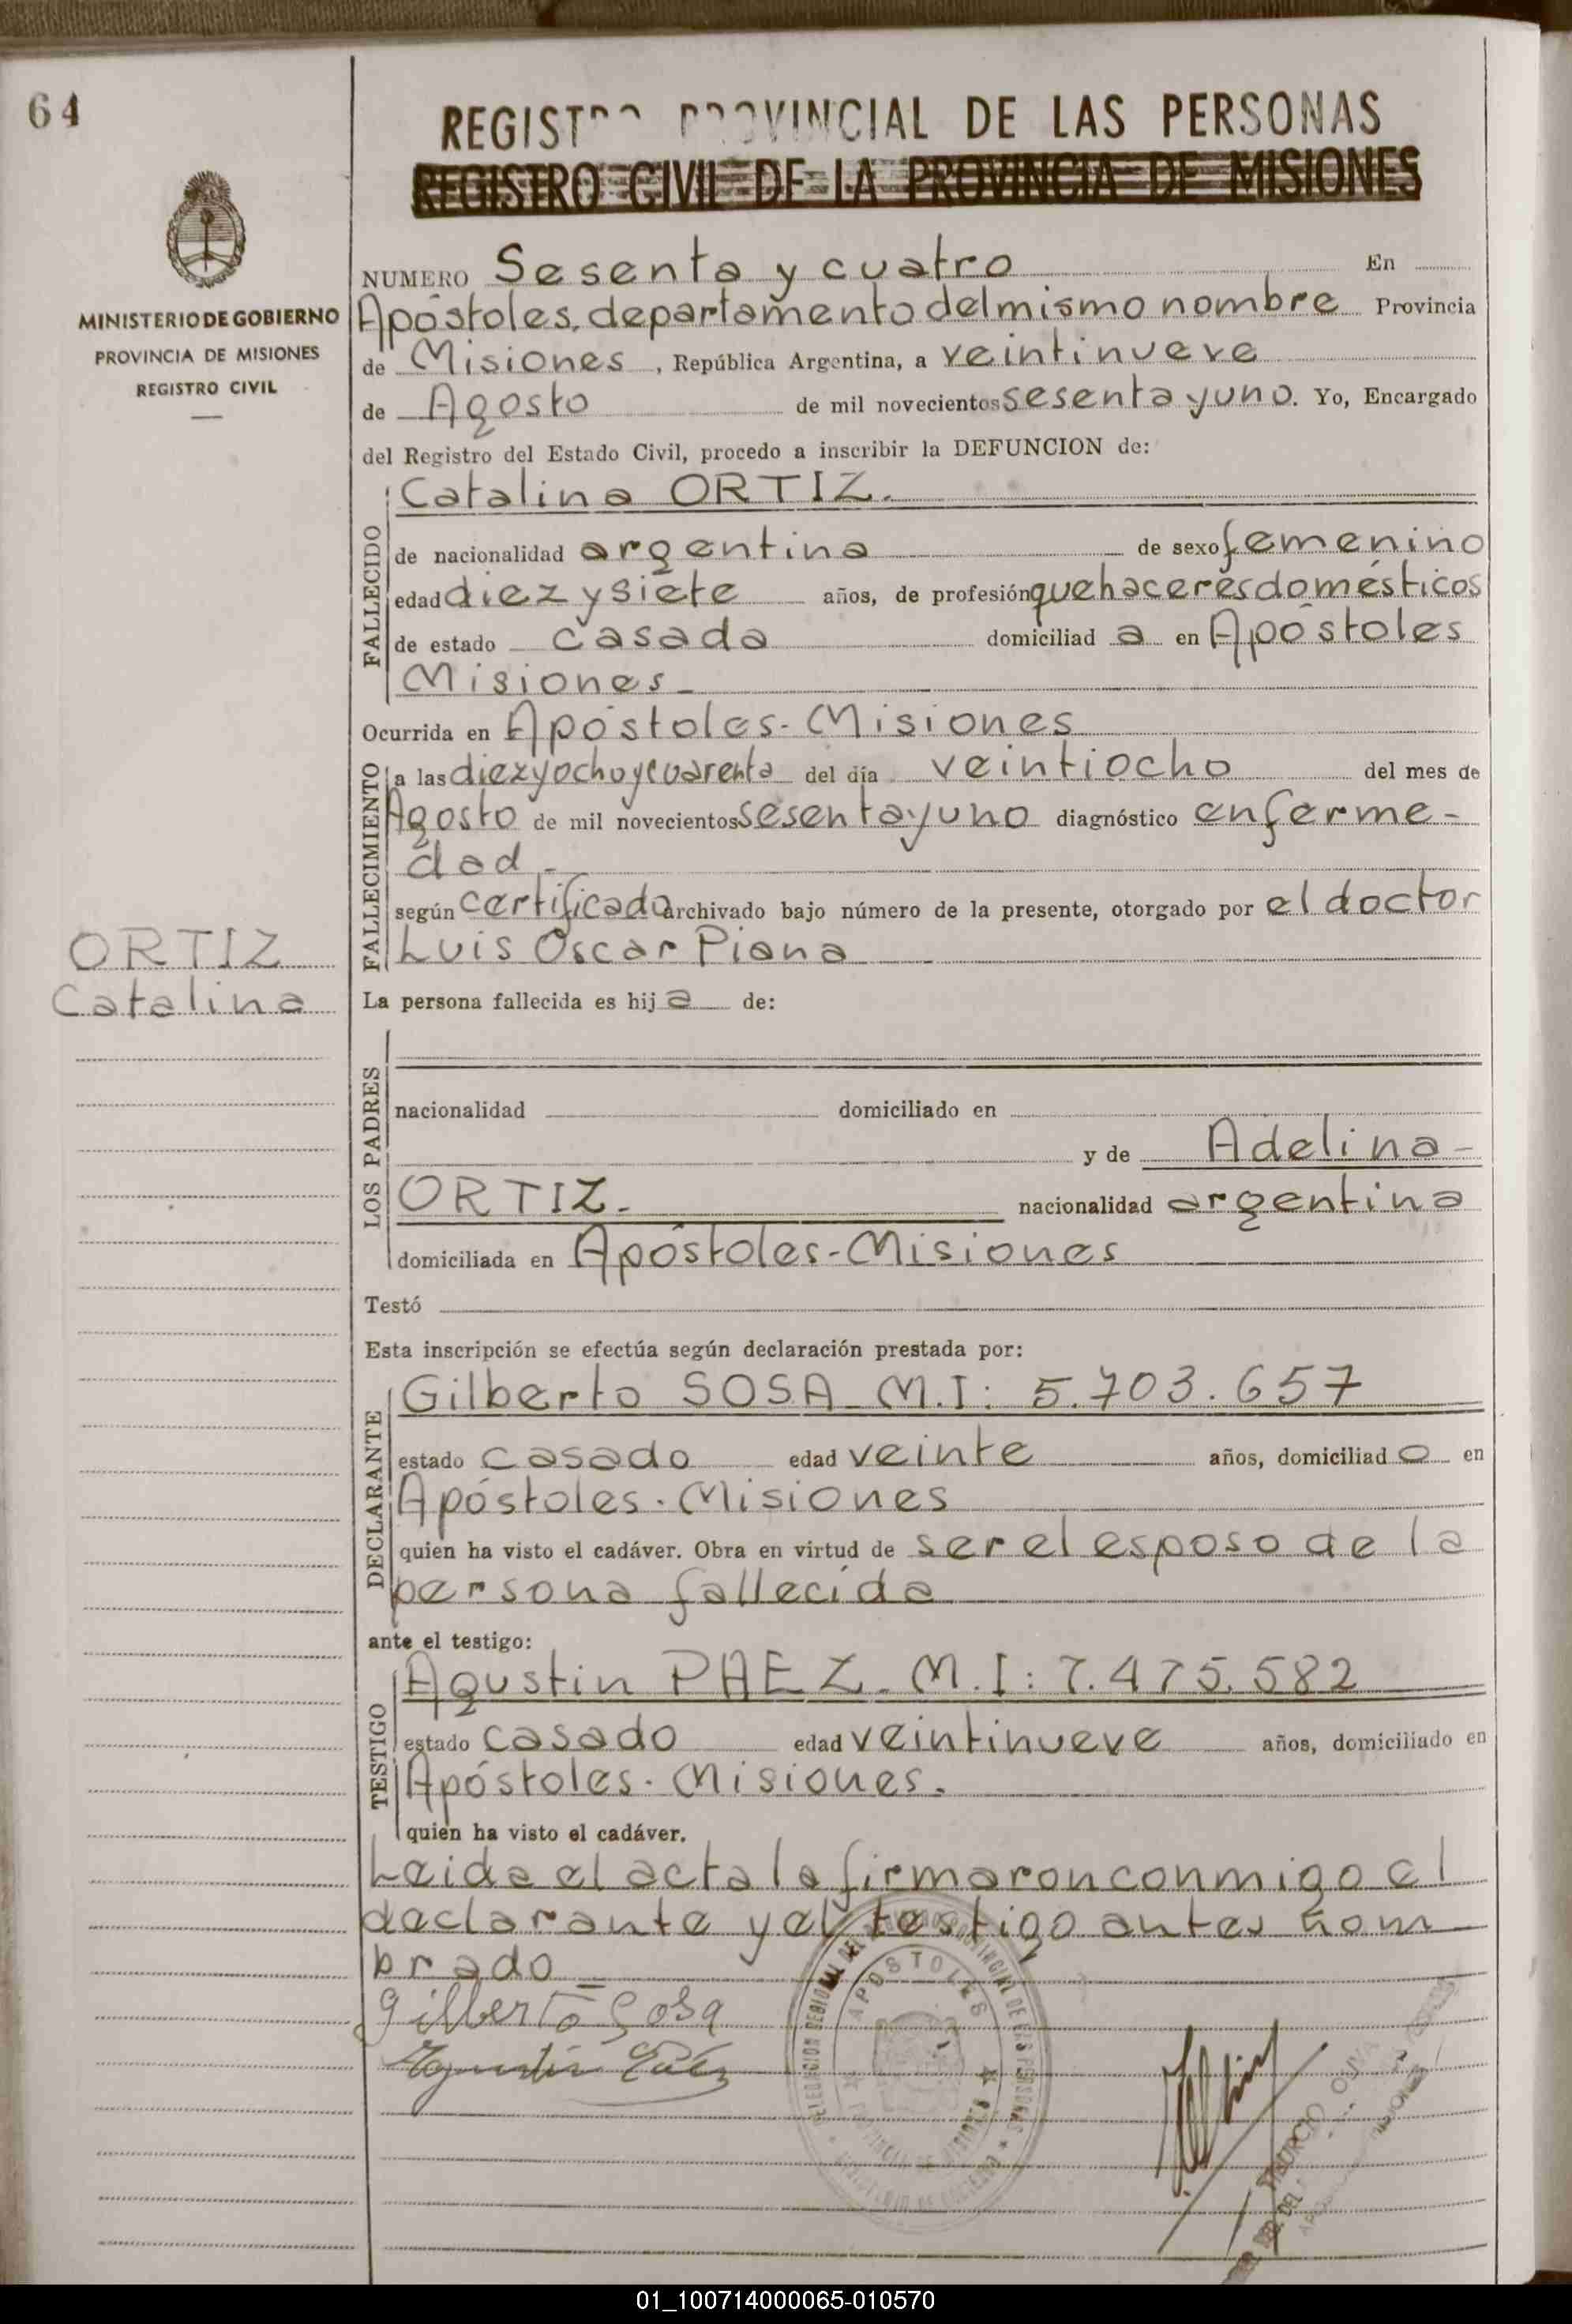 64
REGISTRO PROVINCIAL DE LAS PERSONAS
REGISTRO CIVIL DE LA PROVINCIA DE MISIONES
MINISTERIO DE GOBIERNO
PROVINCIA DE MISIONES
REGISTRO CIVIL
NUMERO Sesenta y cuatro En
Apóstoles, departamento del mismo nombre Provincia
de Misiones, República Argentina, a veintinueve
de Agosto de mil novecientos sesenta y uno. Yo, Encargado
del Registro del Estado Civil, procedo a inscribir la DEFUNCION de:
FALLECIDO
Catalina ORTIZ.
de nacionalidad argentina de sexo femenino
edad diez y siete años, de profesión quehaceres domésticos
de estado casada domiciliad a en Apóstoles
Misiones
Ocurrida en Apóstoles - Misiones
FALLECIMIENTO
a las diez y ocho y cuarenta del día veintiocho del mes de
Agosto de mil novecientos sesenta y uno diagnóstico enferme-
dad -
según certificado archivado bajo número de la presente, otorgado por el doctor
Luis Oscar Piana
ORTIZ
Catalina
La persona fallecida es hij a de:
LOS PADRES
nacionalidad domiciliado en
y de Adelina
ORTIZ. nacionalidad argentina
domiciliada en Apóstoles - Misiones
Testó
Esta inscripción se efectúa según declaración prestada por:
DECLARANTE
Gilberto SOSA M.I: 5.703.657
estado casado edad veinte años, domiciliad o en
Apóstoles - Misiones
quien ha visto el cadáver. Obra en virtud de ser el esposo de la
persona fallecida
ante el testigo:
TESTIGO
Agustin PAEZ. M.I: 7.475.582
estado casado edad veintinueve años, domiciliado en
Apóstoles - Misiones.
quien ha visto el cadáver.
Leida el acta la firmaron conmigo el
declarante y el testigo antes nom
brado
Gilberto Sosa
Agustin Páez
APOSTOLES
01_100714000065-010570